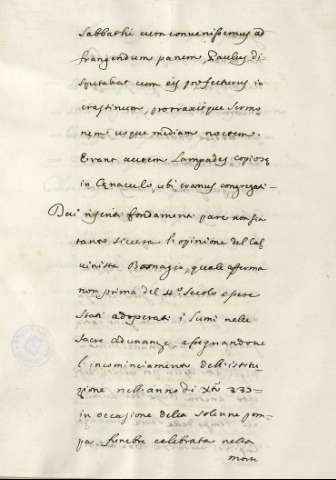 Sabbathi cum convenissemus ad
frangendum panem, Paulus di-
sputabat cum eis profecturus in
crastinum, protraxitque sermo
nem usque mediam noctem.
Erant autem Lampades copiosę
in Cęnaculo, ubi eramus congregati-
Dai riferiti fondamenti pare non sia
tanto sicura l'opinione del Cal
vinista Basnagio, quale afferma
non prima del 4.º Secolo essere
Stati adoperati i lumi nelle
Sacre adunanze, assegnandone
l'incominciamento dell'istitu
zione nell'anno di Xño 333=
in occasione della solenne pom
pa funebre celebrata nella
morte